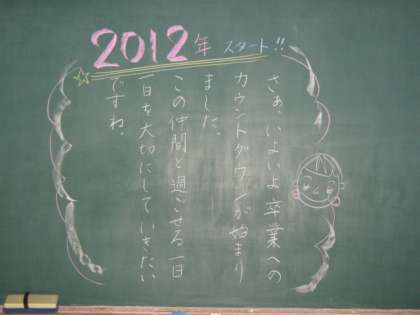 2012年 スタート!!
さぁ、いよいよ卒業への
カウントダウンが始まり
ました。
この仲間と過ごせる一日
一日を大切にしていきたい
ですね。